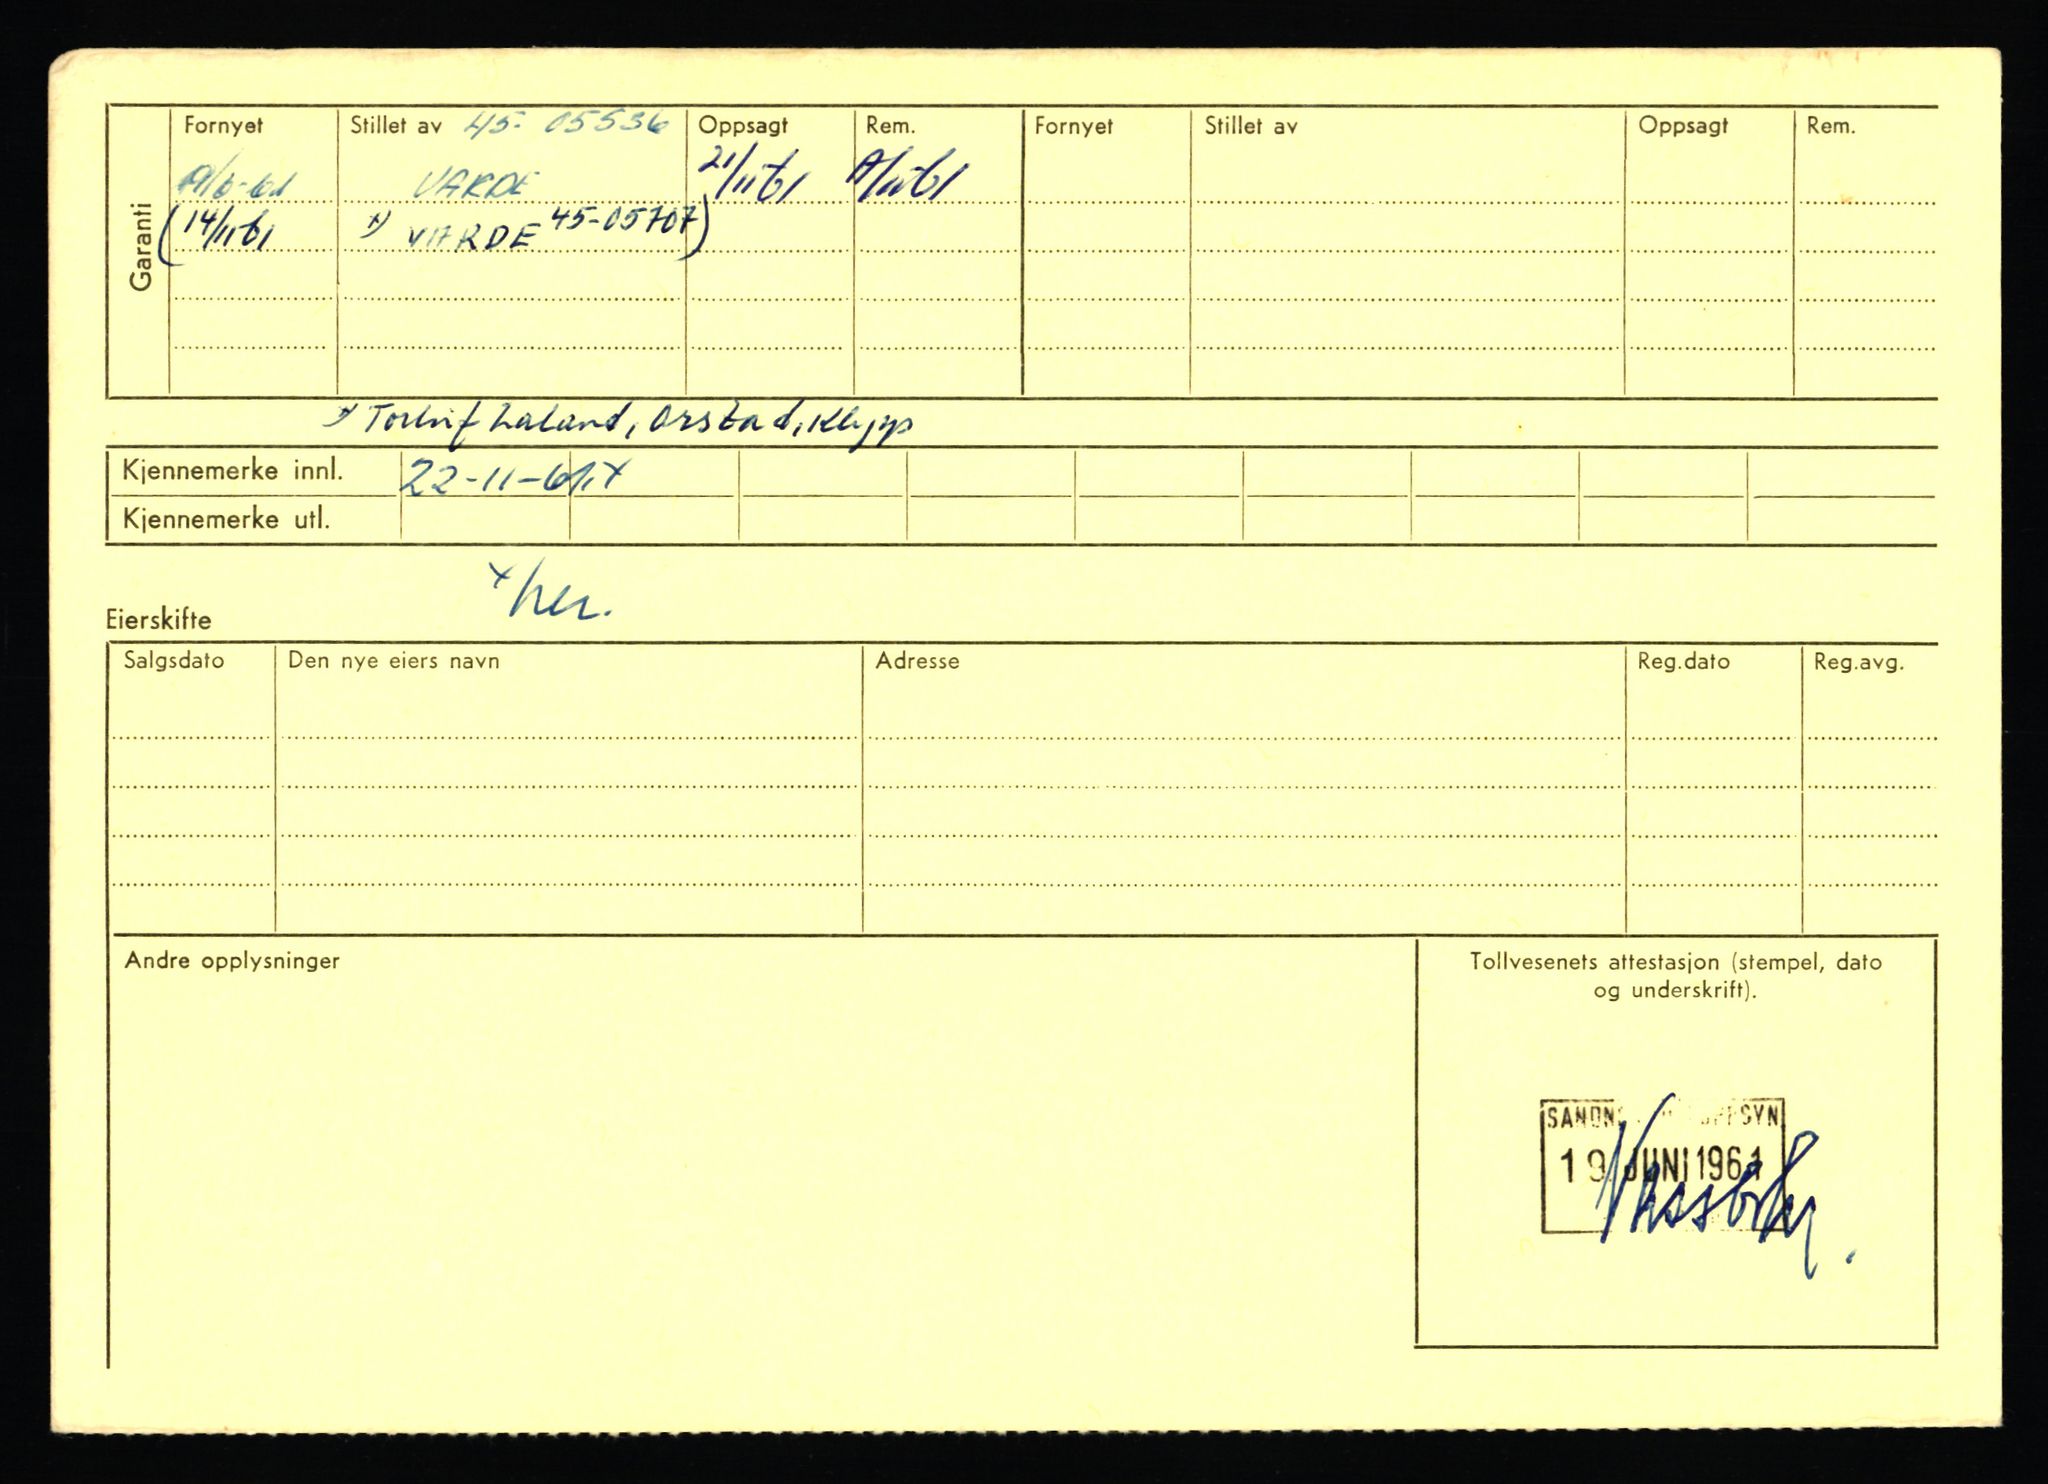 Garanti
Fornyet Stillet av 45- 05536 Oppsagt Rem. Fornyet Stillet av Oppsagt Rem.
19/6-61 VARDE 21/11-61
(14/11-61 *) VARDE 45-05707)
*) Torleif Laland, Orstad, Klepp
Kjennemerke innl. 22-11-61 x
Kjennemerke utl.
x her.
Eierskifte
Salgsdato Den nye eiers navn Adresse Reg.dato Reg.avg.
Andre opplysninger
Tollvesenets attestasjon (stempel, dato
og underskrift).
19 JUNI 1961